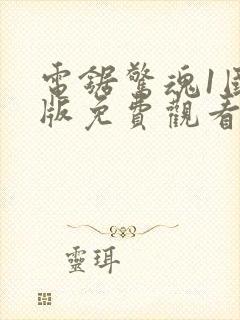 電鋸驚魂1
版免費觀看
靈珥